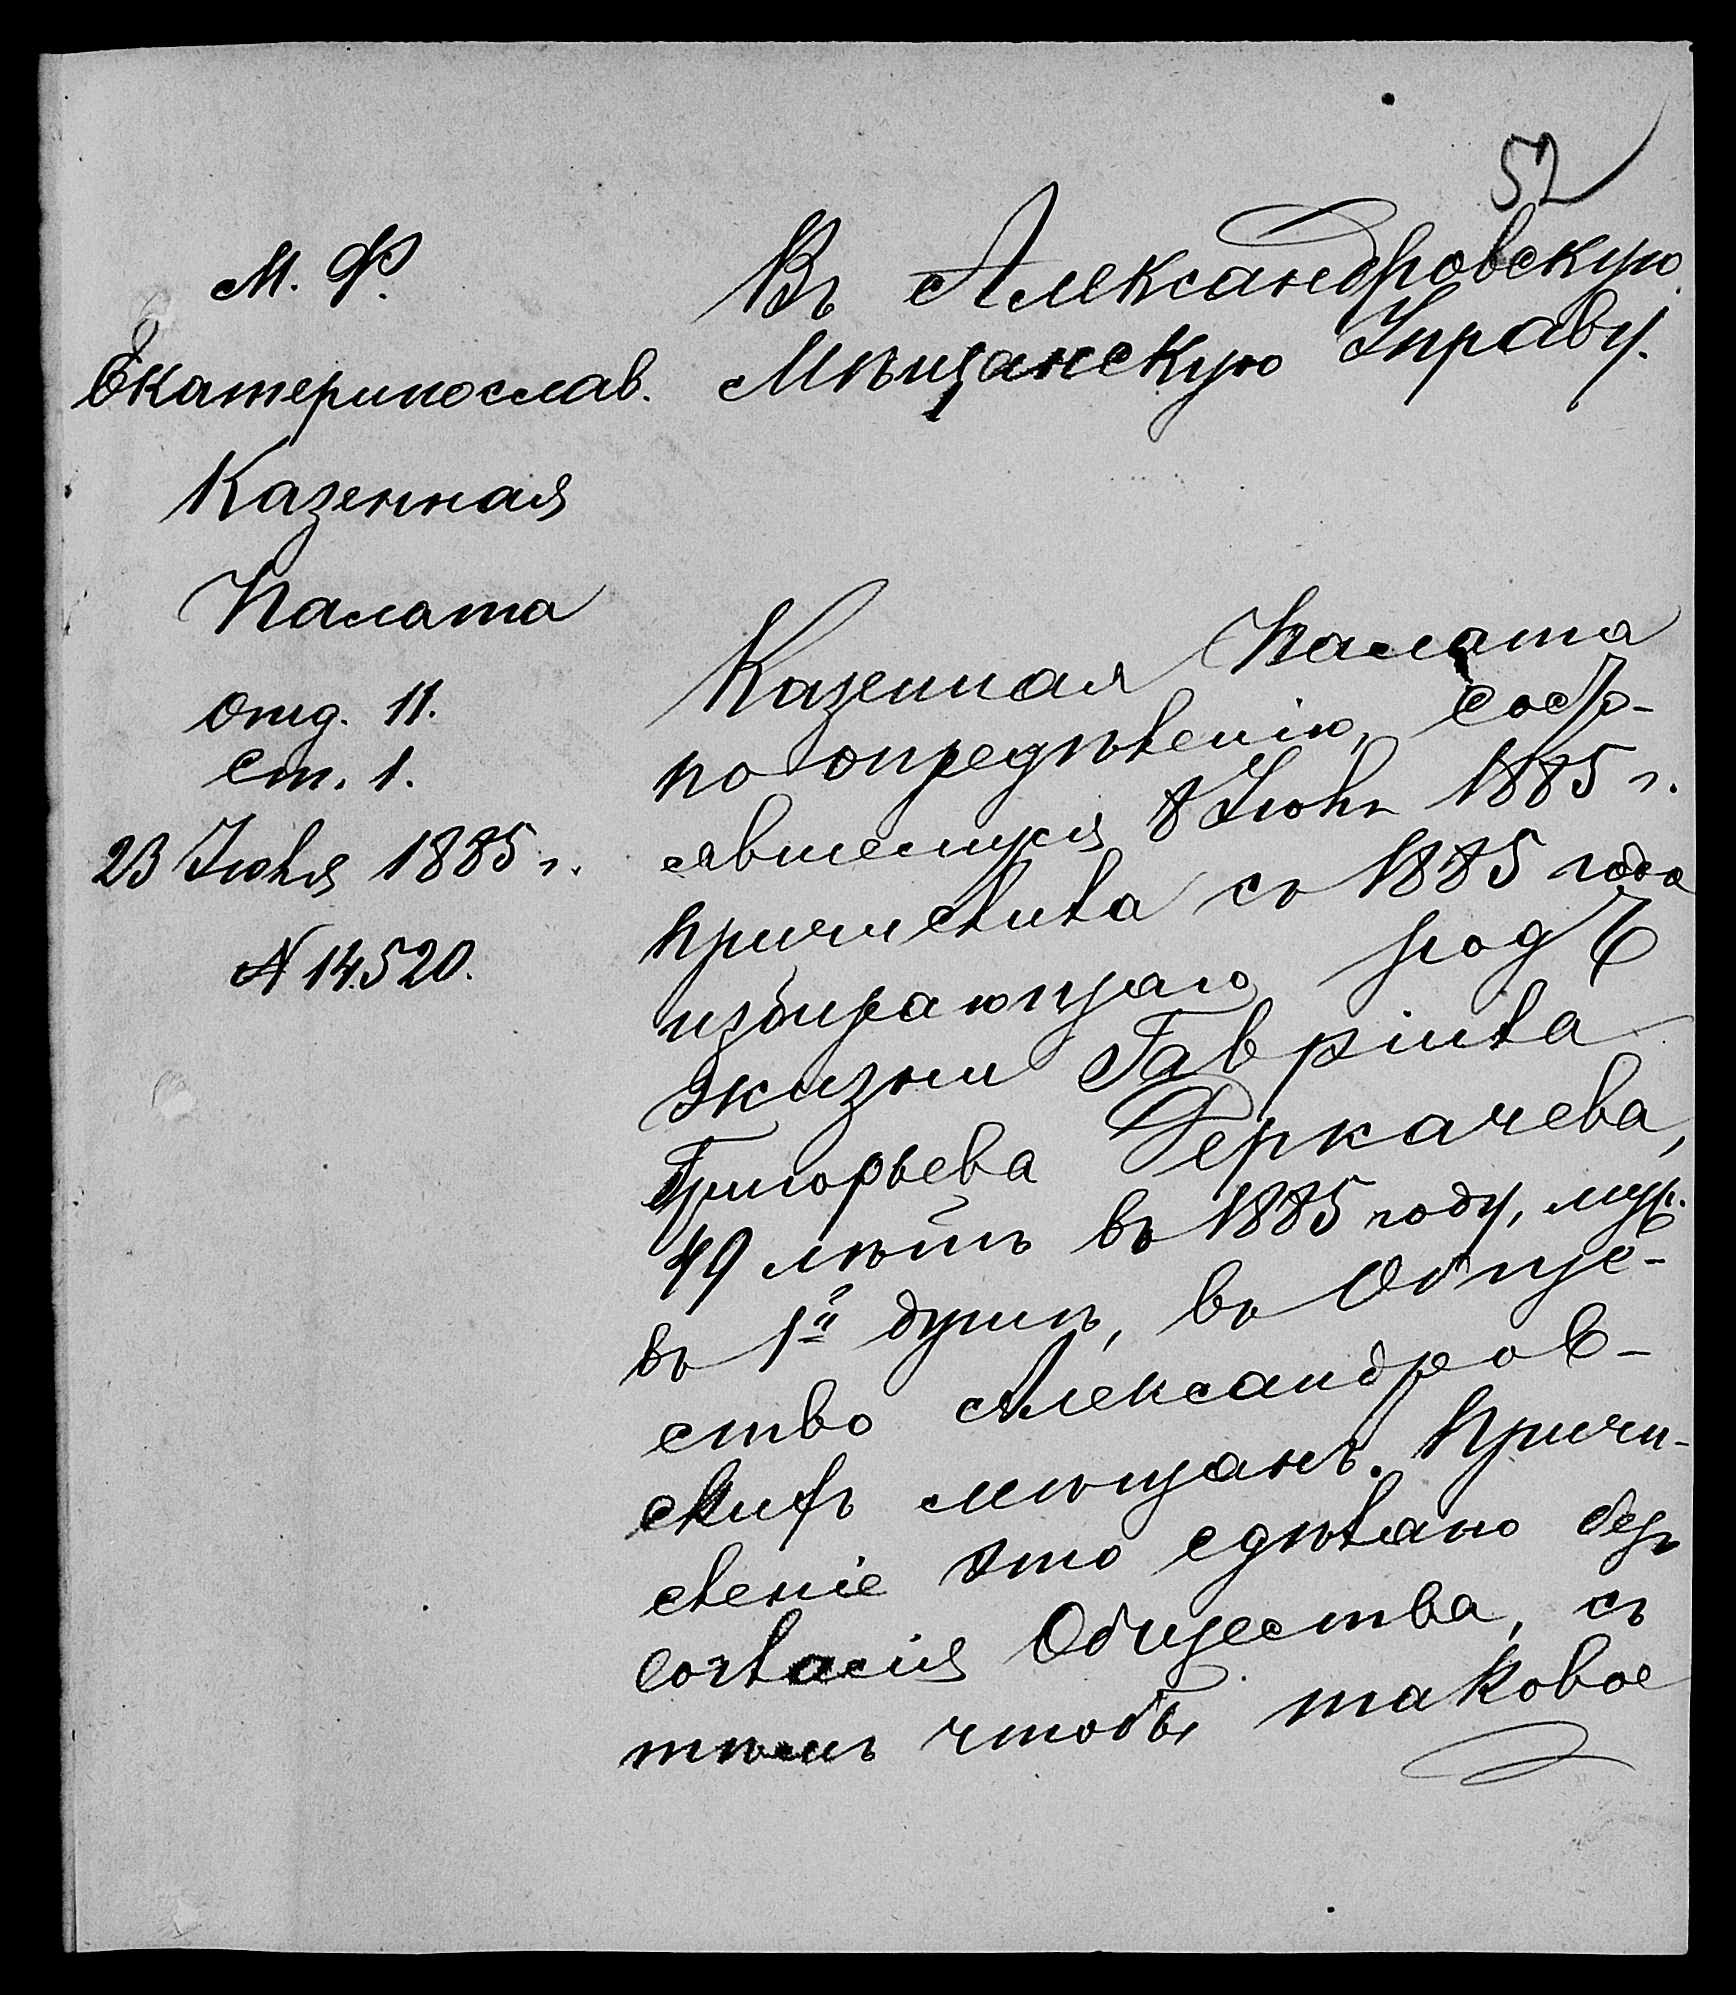 52
М. Ф.
Екатеринослав.
Казенная
Палата
Отд. II.
Ст. 1.
23 Іюля 1885 г.
№ 14520.
Въ Александровскую
Мѣщанскую Управу.
Казенная Палата
по опредѣленію, состо-
явшемуся 8 Іюля 1885 г.
причислила съ 1885 года
избирающаго родъ
жизни Гавріила
Григорьева Деркачева,
49 лѣтъ въ 1885 году, муж.
въ 1й душѣ, въ Обще-
ство Александров-
скихъ мѣщанъ. Причи-
сленіе это сдѣлано безъ
согласія Общества, съ
тѣмъ чтобы таковое